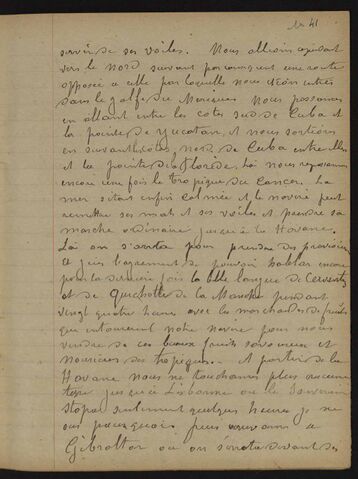 41
servir de ses voiles. Nous allions cependant
vers le nord suivant par consequent une route
opposée a celle par laquelle nous étions entrés
dans le golfe du Mexique. Nous passames
en allant entre les cotes sud de Cuba et
la pointe de Yucatan, et nous sortions
en suivant les cotes nord de Cuba entre elles
et la pointe de la Floride. Là nous repassames
encore une fois le tropique du Cancer. La
mer s'etait enfin calmée et le navire peut
remettre ses mats et ses voiles et prendre sa
marche ordinaire jusqu'a la Havane.
Là on s'arreta pour prendre des provisions
et j'eus l'agrement de pouvoir hablar encore
pour la derniere fois la belle langue de Cervantes
et de Quichotte de la Mancha pendant
vingt quatre heures avec les marchands de fruits
qui entouraient notre navire pour nous
vendre de ces beaux fruits savoureux et
nourriciers des tropiques. Et a partir de la
Havane nous ne touchames plus aucune
terre jusqu'a Lisbonne ou le Souverain
stopa seulement quelques heures je ne
sais pourquoi puis nous vinmes a
Gibraltar ou on s'arreta devant des